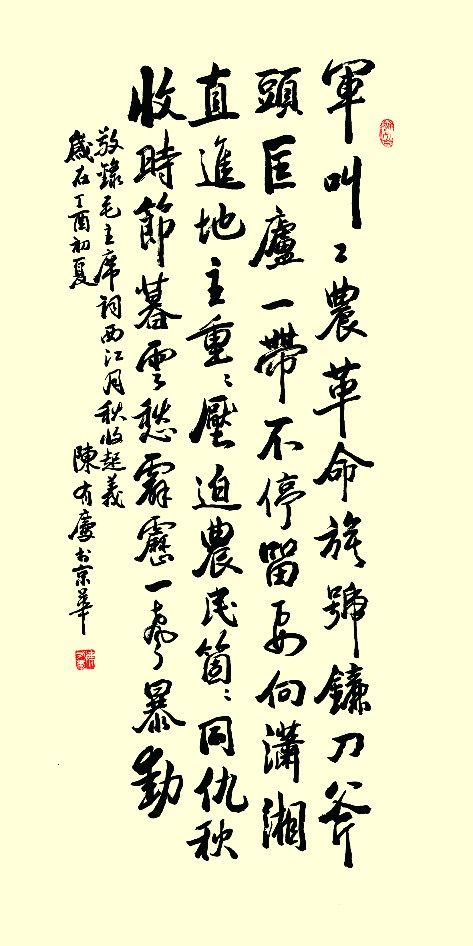 軍叫工農革命旗號鐮刀斧
頭匡廬一帶不停留要向瀟湘
直進地主重々壓迫農民箇々同仇秋
收時節暮雲愁霹靂一聲暴動
敬錄毛主席詞西江月秋收起義
歲在丁酉初夏 陳有慶於京華